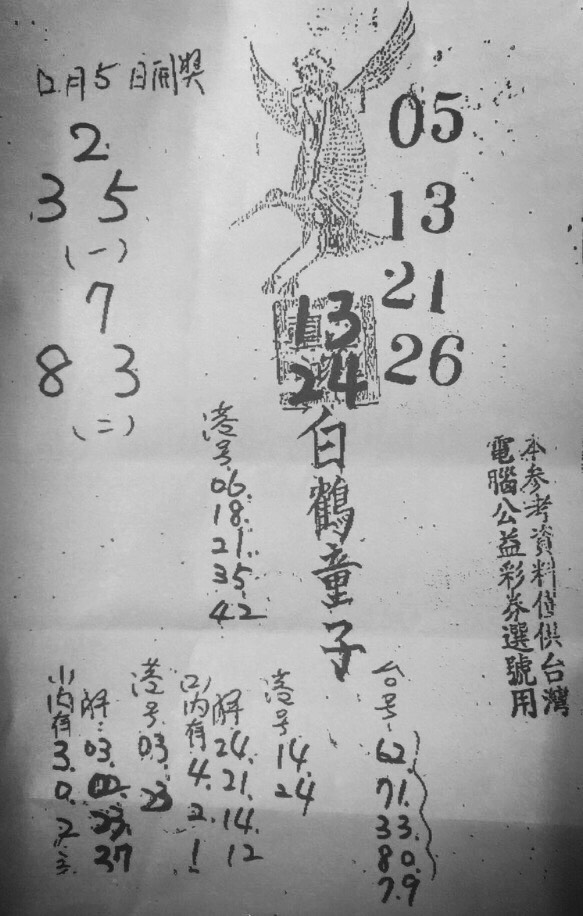 12月5日開獎
2
3 5
(一)
7
8 3
(二)
05
13
21
26
13
24
白鶴童子
港号
06.
18.
21.
35.
42
本參考資料僅供台灣
電腦公益彩券選號用
(一)內有
3.
0.
2
解:
03.
23.
37
港号
03.
23
(二)內有
4.
2.
1
解
24.
21.
14.
12
港号
14.
24
台号
62.
71.
33.
80.
79